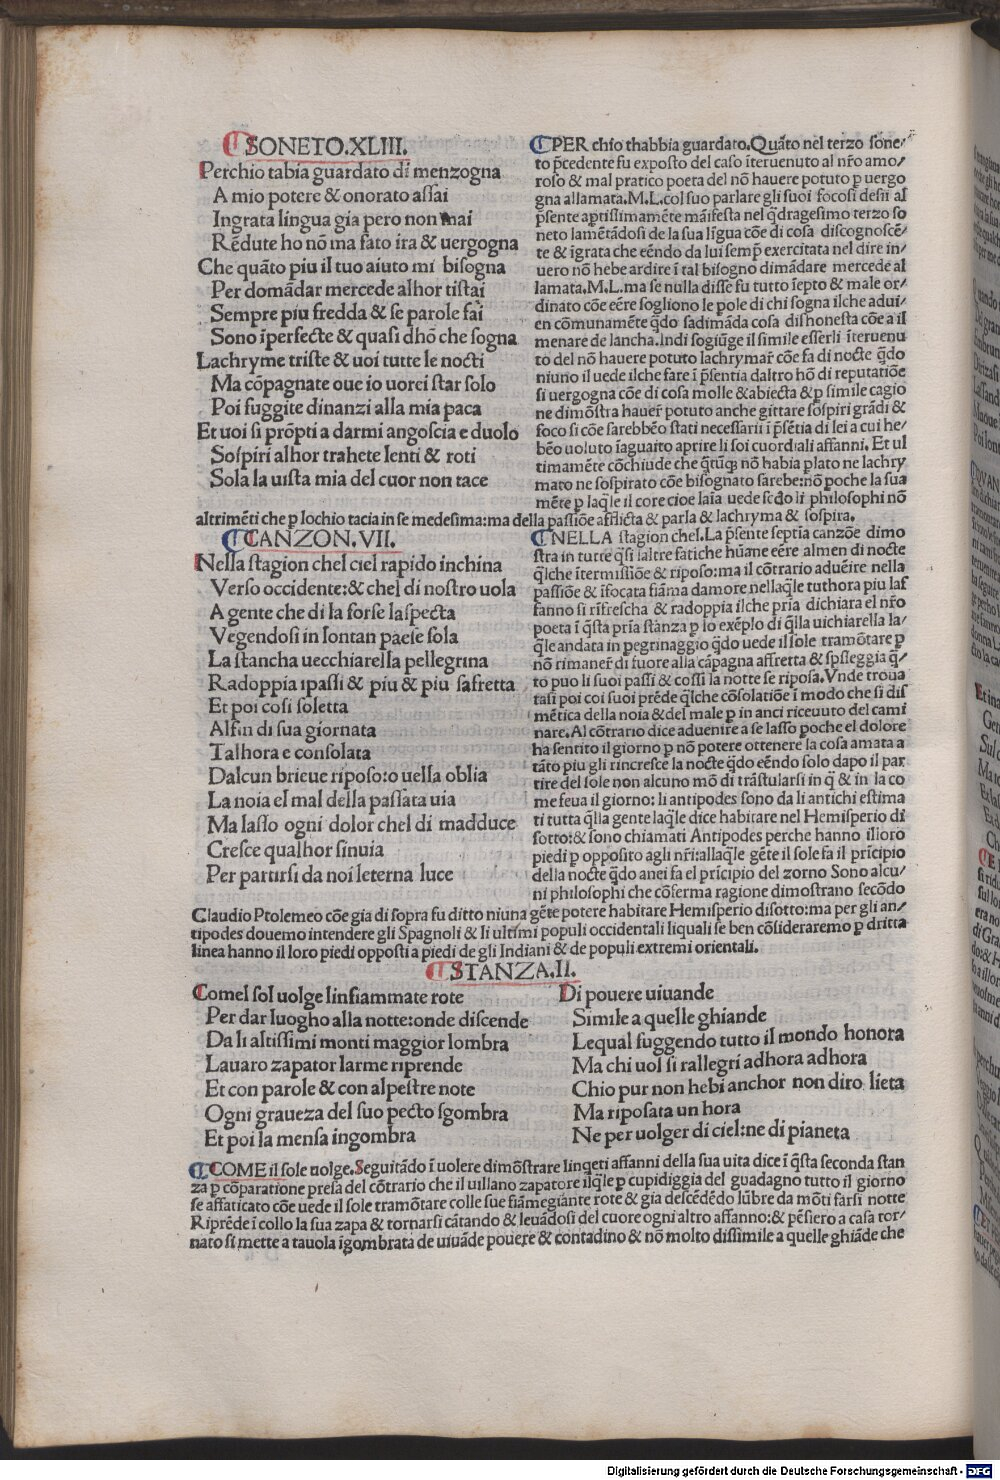 SONETO.XLIII.
Perchio tabia guardato di menzogna
A mio potere & onorato assai
Ingrata lingua gia pero non mai
Rēdute ho nō ma fato ira & uergogna
Che quāto piu il tuo aiuto mi bisogna
Per domādar mercede alhor tistai
Sempre piu fredda & se parole fai
Sono īperfecte & quasi dhō che sogna
Lachryme triste & uoi tutte le nocti
Ma cōpagnate oue io uorei star solo
Poi fuggite dinanzi alla mia paca
Et uoi si prōpti a darmi angoscia e duolo
Sospiri alhor trahete lenti & roti
Sola la uista mia del cuor non tace
PER chio thabbia guardato. Quāto nel terzo sone/
to p̄cedente fu exposto del caso īteruenuto al nr̄o amo/
roso & mal pratico poeta del nō hauere potuto p uergo
gna allamata.M.L.col suo parlare gli suoi focosi desii al
p̄sente aprtissimamēte māifesta nel q̄dragesimo terzo so
neto lamētādosi de la sua līgua cōe di cosa discognoscē/
te & īgrata che eēndo da lui semp̄ exercitata nel dire in/
uero nō hebe ardire ī tal bisogno dimādare mercede al
lamata.M.L.ma se nulla disse fu tutto īepto & male or/
dinato cōe eēre sogliono le pole di chi sogna ilche adui/
en cōmunamēte q̄do sadimāda cosa dishonesta cōe a il
menare de lancha.Indi sogiūge il simile esserli īteruenu
to del nō hauere potuto lachrymar̄ cōe fa di nocte q̄do
niuno il uede ilche fare ī p̄sentia daltro hō di reputatiōe
si uergogna cōe di cosa molle & abiecta & p simile cagio
ne dimōstra hauer̄ potuto anche gittare sospiri grādi &
foco si cōe sarebbēo stati necessarii ī p̄sētia di lei a cui he/
bēo uoluto īaguaito aprire li soi cuordiali affanni. Et ul
timamēte cōchiude che q̄tūq; nō habia plato ne lachry
mato ne sospirato cōe bisognato sarebe:nō poche la sua
mēte p laq̄le il core cioe laīa uede scdo li philosophi nō
altrimēti che p lochio tacia in se medesima:ma della passiōe afflicta & parla & lachryma & sospira.
CANZON.VII.
Nella stagion chel ciel rapido inchina
Verso occidente:& chel di nostro uola
A gente che di la forse laspecta
Vegendosi in lontan paese sola
La stancha uecchiarella pellegrina
Radoppia ipassi & piu & piu safretta
Et poi cosi soletta
Alfin di sua giornata
Talhora e consolata
Dalcun brieue riposo:o uella oblia
La noia el mal della passata uia
Ma lasso ogni dolor chel di madduce
Cresce qualhor sinuia
Per partirsi da noi leterna luce
NELLA stagion chel.La p̄sente septīa canzōe dimo
stra in tutte q̄si laltre fatiche hūane eēre almen di nocte
q̄lche ītermissiōe & riposo:ma il cōtrario aduēire nella
passiōe & ifocata fiāma damore nellaq̄le tuthora piu las
fanno si rīfrescha & radoppia ilche pria dichiara el nr̄o
poeta ī q̄sta pria stānza p lo exēplo di q̄lla uichiarella la/
q̄le andata in pegrinaggio q̄do uede il sole tramōtare p
nō rimaner̄ di fuore alla cāpagna affretta & spsseggia q̄/
to puo li suoi passi & cossi la notte se riposa.Vnde troua
tasi poi coi suoi prēde q̄lche cōsolatiōe ī modo che si dis
mētica della noia & del male p in anci riceuuto del cami
nare.Al cōtrario dice aduenire a se lasso poche el dolore
ha sentito il giorno p nō potere ottenere la cosa amata a
tāto piu gli rincresce la nocte q̄do eēndo solo dapo il par
tire del sole non alcuno mō di trāstularsi in q̄ & in la co
me feua il giorno: li antipodes sono da li antichi estima
ti tutta q̄lla gente laq̄le dice habitare nel Hemisperio di
sotto:& sono chiamati Antipodes perche hanno illoro
piedi p opposito agli nr̄i:allaq̄le gēte il sole fa il pricipio
della nocte q̄do anei fa el pricipio del zorno Sono alcu/
ni philosophi che cōferma ragione dimostrano secōdo
Claudio Ptolemeo cōe gia di sopra fu ditto niuna gēte potere habitare Hemisperio disotto:ma per gli an/
tipodes douemo intendere gli Spagnoli & li ultimi populi occidentali liquali se ben cōsideraremo p dritta
linea hanno il loro piedi opposti a piedi de gli Indiani & de populi extremi orientali.
STANZA.II.
Comel sol uolge linfiammate rote
Per dar luogho alla notte:onde discende
Da li altissimi monti maggior lombra
Lauaro zapator larme riprende
Et con parole & con alpestre note
Ogni graueza del suo pecto sgombra
Et poi la mensa ingombra
Di pouere uiuande
Simile a quelle ghiande
Lequal fuggendo tutto il mondo honora
Ma chi uol si rallegri adhora adhora
Chio pur non hebi anchor non diro lieta
Ma riposata un hora
Ne per uolger di ciel:ne di pianeta
COME il sole uolge.Seguitādo ī uolere dimōstrare linqeti affanni della sua uita dice ī q̄sta seconda stan
za p cōparatione presa del cōtrario che il uillano zapatore ilq̄le p cupidiggia del guadagno tutto il giorno
se affaticato cōe uede il sole tramōtare colle sue fiāmegiante rote & gia descēdēdo lūbre da mōti farsi notte
Riprēde ī collo la sua zapa & tornarsi cātando & leuādosi del cuore ogni altro affanno:& pēsiero a casa tor/
nato si mette a tauola īgombrata de uiuāde pouere & contadino & nō molto dissimile a quelle ghiāde che
Digitalisierung gefördert durch die Deutsche Forschungsgemeinschaft - DFG